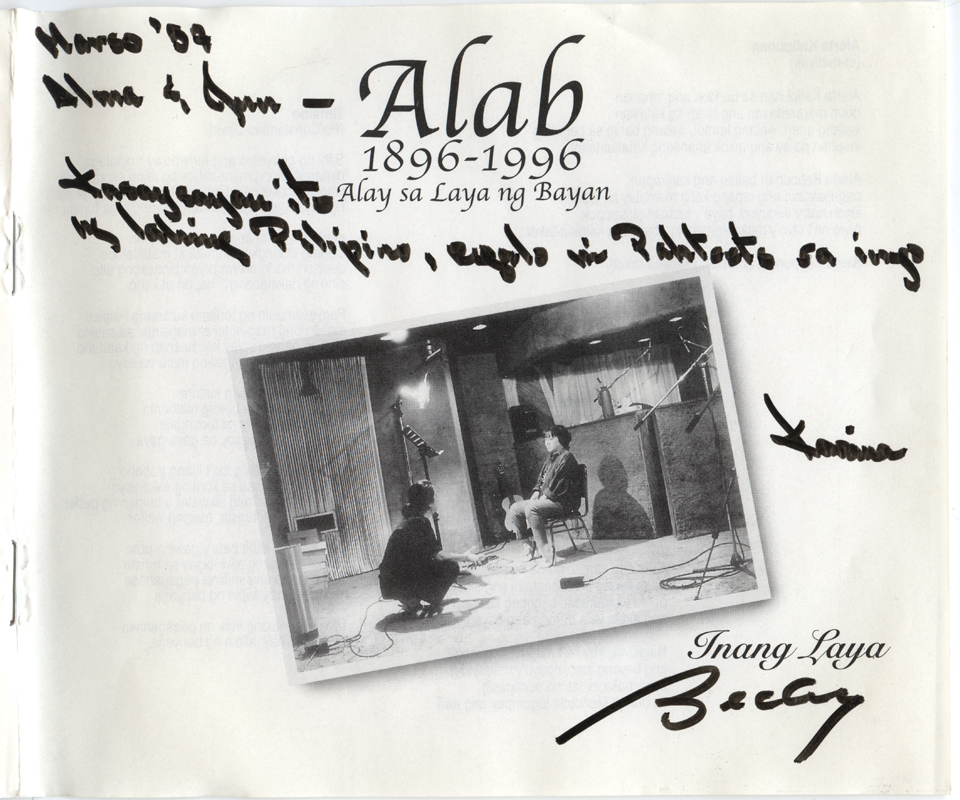 Marso '99
Alma & Ann –
Alab
1896-1996
Alay sa Laya ng Bayan
Kasaysayan 'ito
ng lahing Pilipino, regalo ni sa inyo
Karina
Inang Laya
Becky